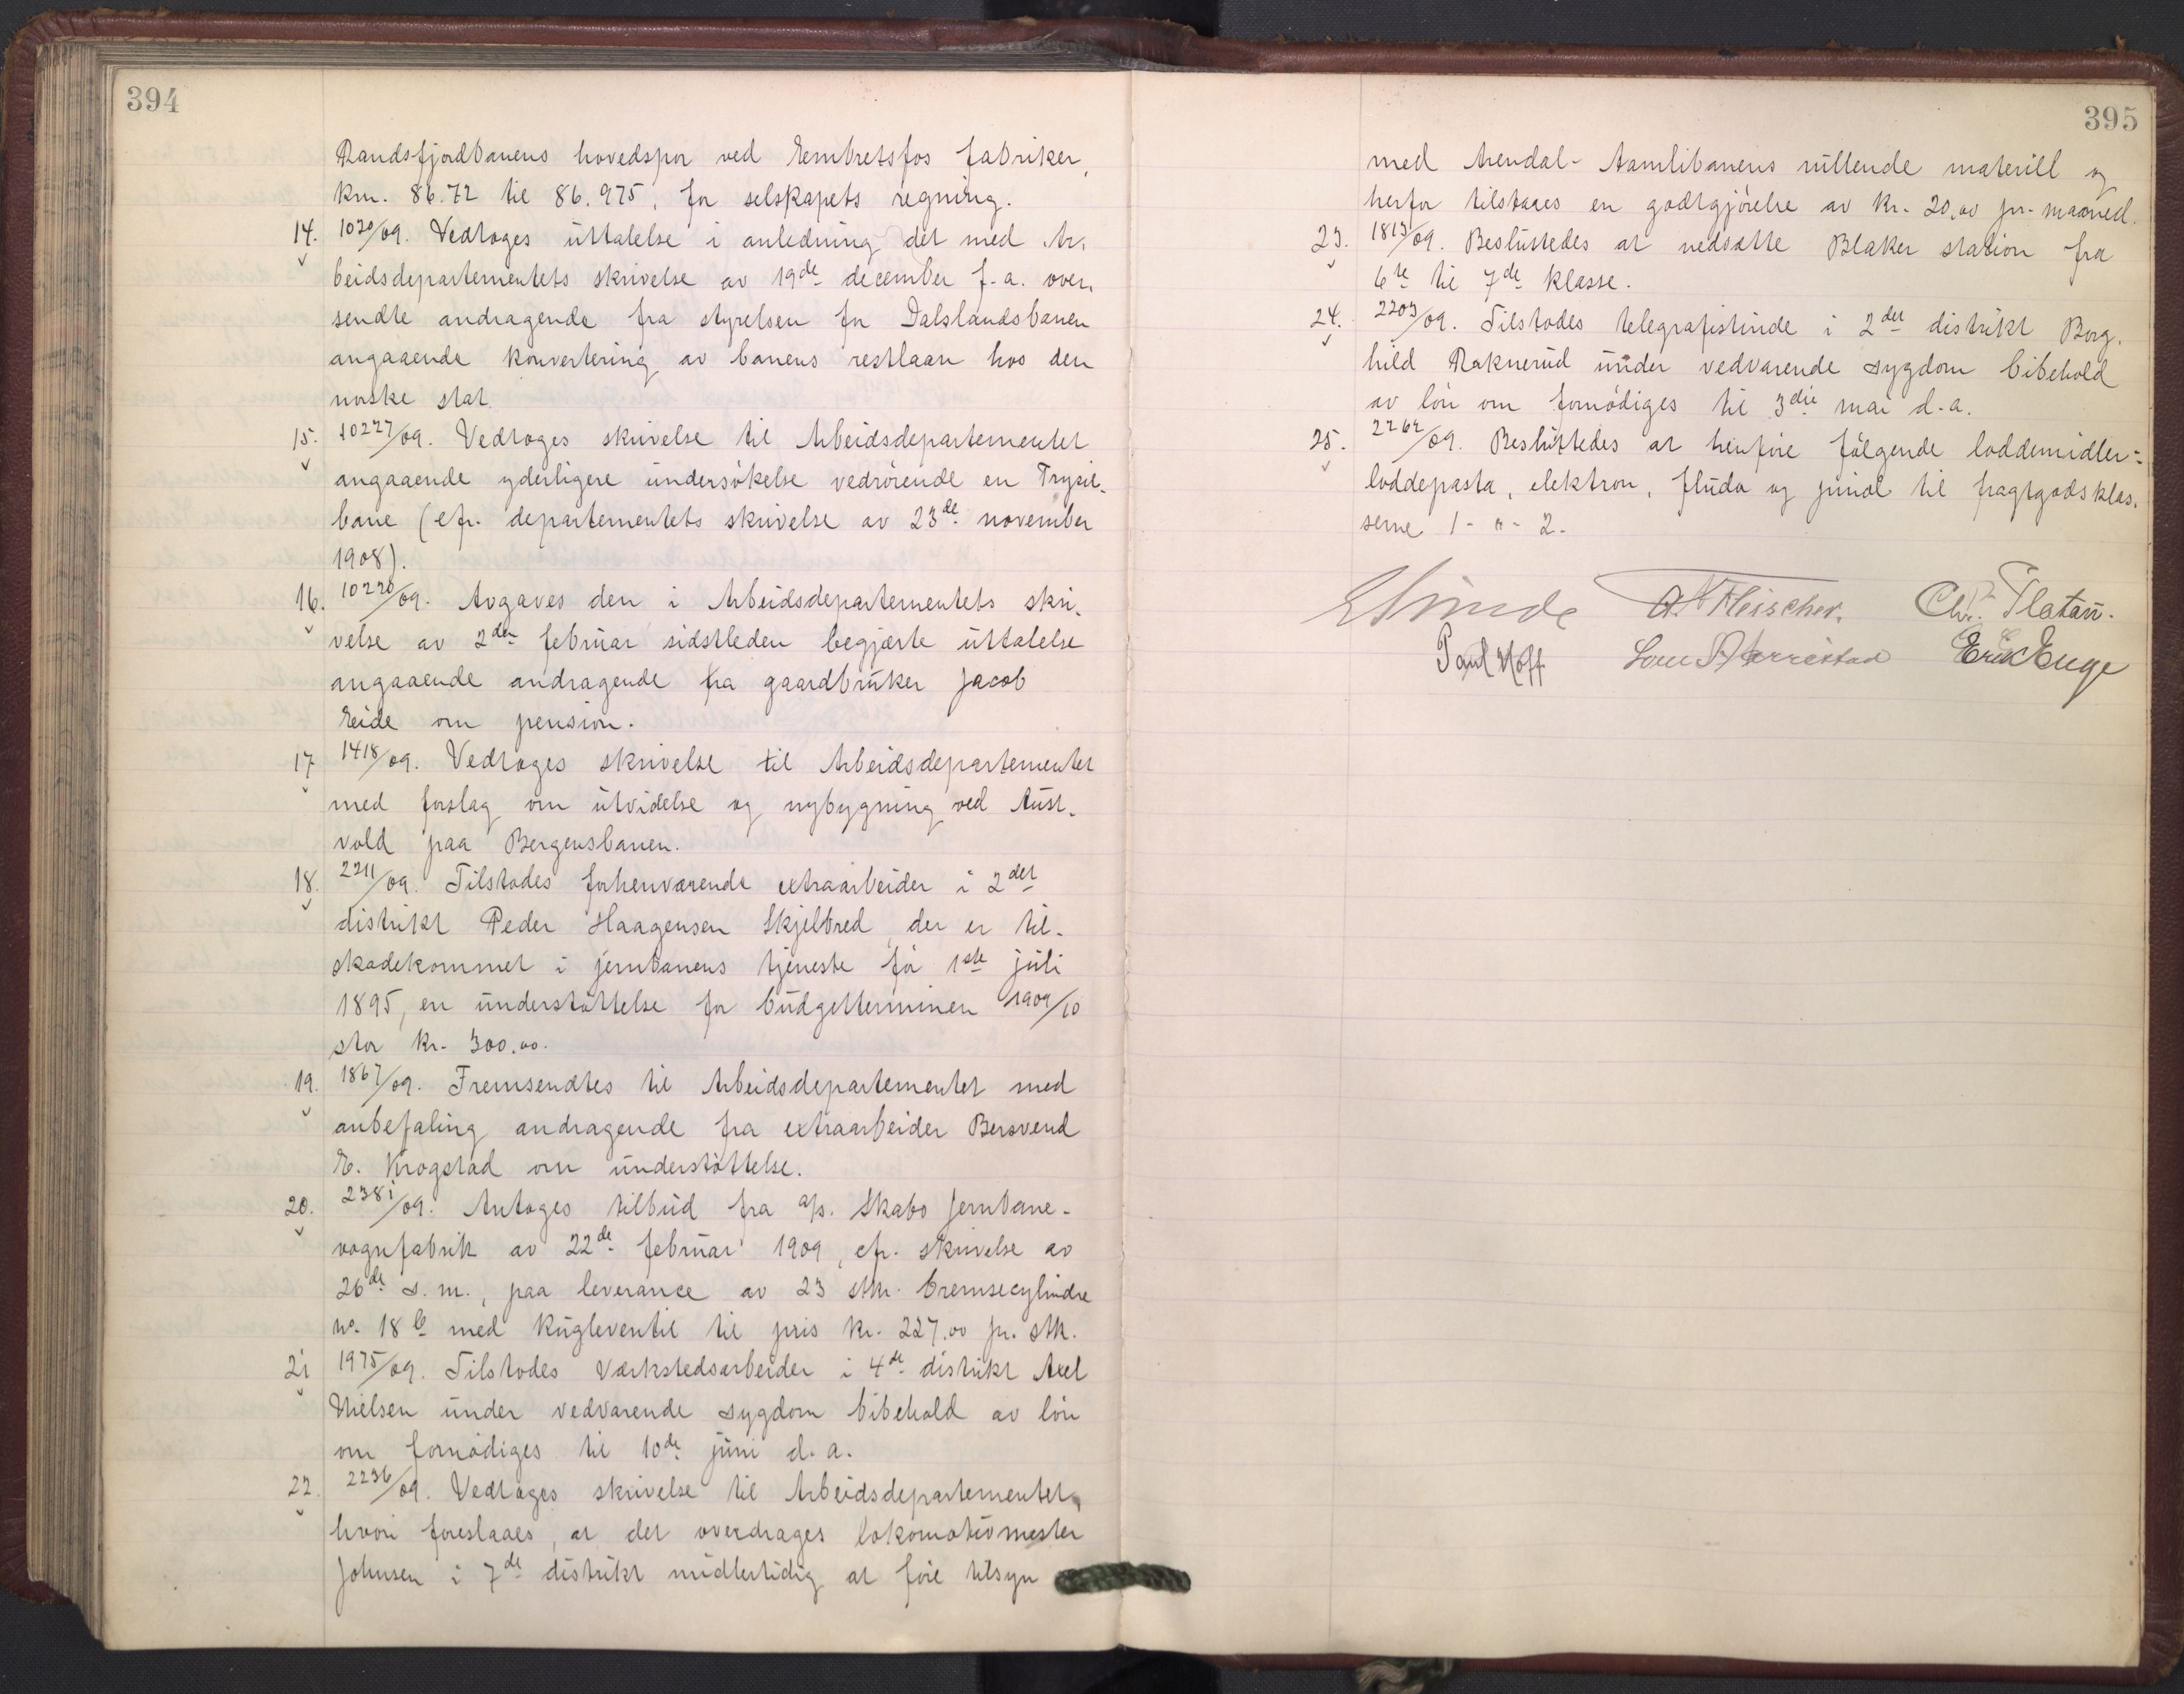 394
Randsfjordbanens hovedspor ved Embretsfos fabriker,
km. 86.72 til 86.975, for selskapets regning.
14. 1020/09. Vedtoges uttalelse i anledning det med Ar-
beidsdepartementets skrivelse av 19de december f.a. over-
sendte andragende fra styrelsen for Dalslandsbanen
angaaende konvertering av banens restlaan hos den
norske stat.
15. 10227/09. Vedtoges skrivelse til Arbeidsdepartementet
angaaende yderligere undersøkelse vedrørende en Trysil-
bane (cfr. departementets skrivelse av 23de november
1908).
16. 10220/09. Avgaves den i Arbeidsdepartementets skri-
velse av 2den februar sidstleden begjærte uttalelse
angaaende andragende fra gaardbruker Jacob
Eide om pension.
17 1418/09. Vedtoges skrivelse til Arbeidsdepartementet
med forslag om utvidelse og nybygning ved Aust-
vold paa Bergensbanen.
18. 2211/09. Tilstodes forhenværende extraarbeider i 2det
distrikt Peder Haagensen Skjelbred, der er til-
skadekommet i jernbanens tjeneste før 1ste juli
1895, en understøttelse for budgetterminen 1909/10
stor kr. 300.00.
19. 1867/09. Fremsendtes til Arbeidsdepartementet med
anbefaling andragende fra extraarbeider Bersvend
E. Krogstad om understøttelse.
20. 2381/09. Antoges tilbud fra a/s. Skabo Jernbane-
vognfabrik av 22de februar 1909, cfr. skrivelse av
26de s.m., paa leverance av 23 stk. bremsecylindre
no. 18 b med kugleventil til pris kr. 227.00 pr. stk.
21 1975/09. Tilstodes Værkstedsarbeider i 4de distrikt Axel
Nielsen under vedvarende sygdom bibehold av løn
om fornødiges til 10de juni d.a.
22. 2236/09. Vedtoges skrivelse til Arbeidsdepartementet,
hvori foreslaaes, at det overdrages lokomotivmester
Johnsen i 7de distrikt midlertidig at føre tilsyn
395
med Arendal-Aamlibanens rullende materiell og
herfor tilstaaes en godtgjørelse av kr. 20.00 pr. maaned.
23. 1813/09. Besluttedes at nedsætte Blaker station fra
6te til 7de klasse.
24. 2203/09. Tilstodes telegrafistinde i 2det distrikt Borg-
hild Raknerud under vedvarende sygdom bibehold
av løn om fornødiges til 3die mai d.a.
25. 2262/09. Besluttedes at henføre følgende loddemidler:
loddepasta, elektron, fluda og pinol til fragtgodsklas-
serne 1 - " - 2.
Elsinde A. Fleischer. Chr. Platou.
Paul Hoff Lars S. Harrestad Erik Enge